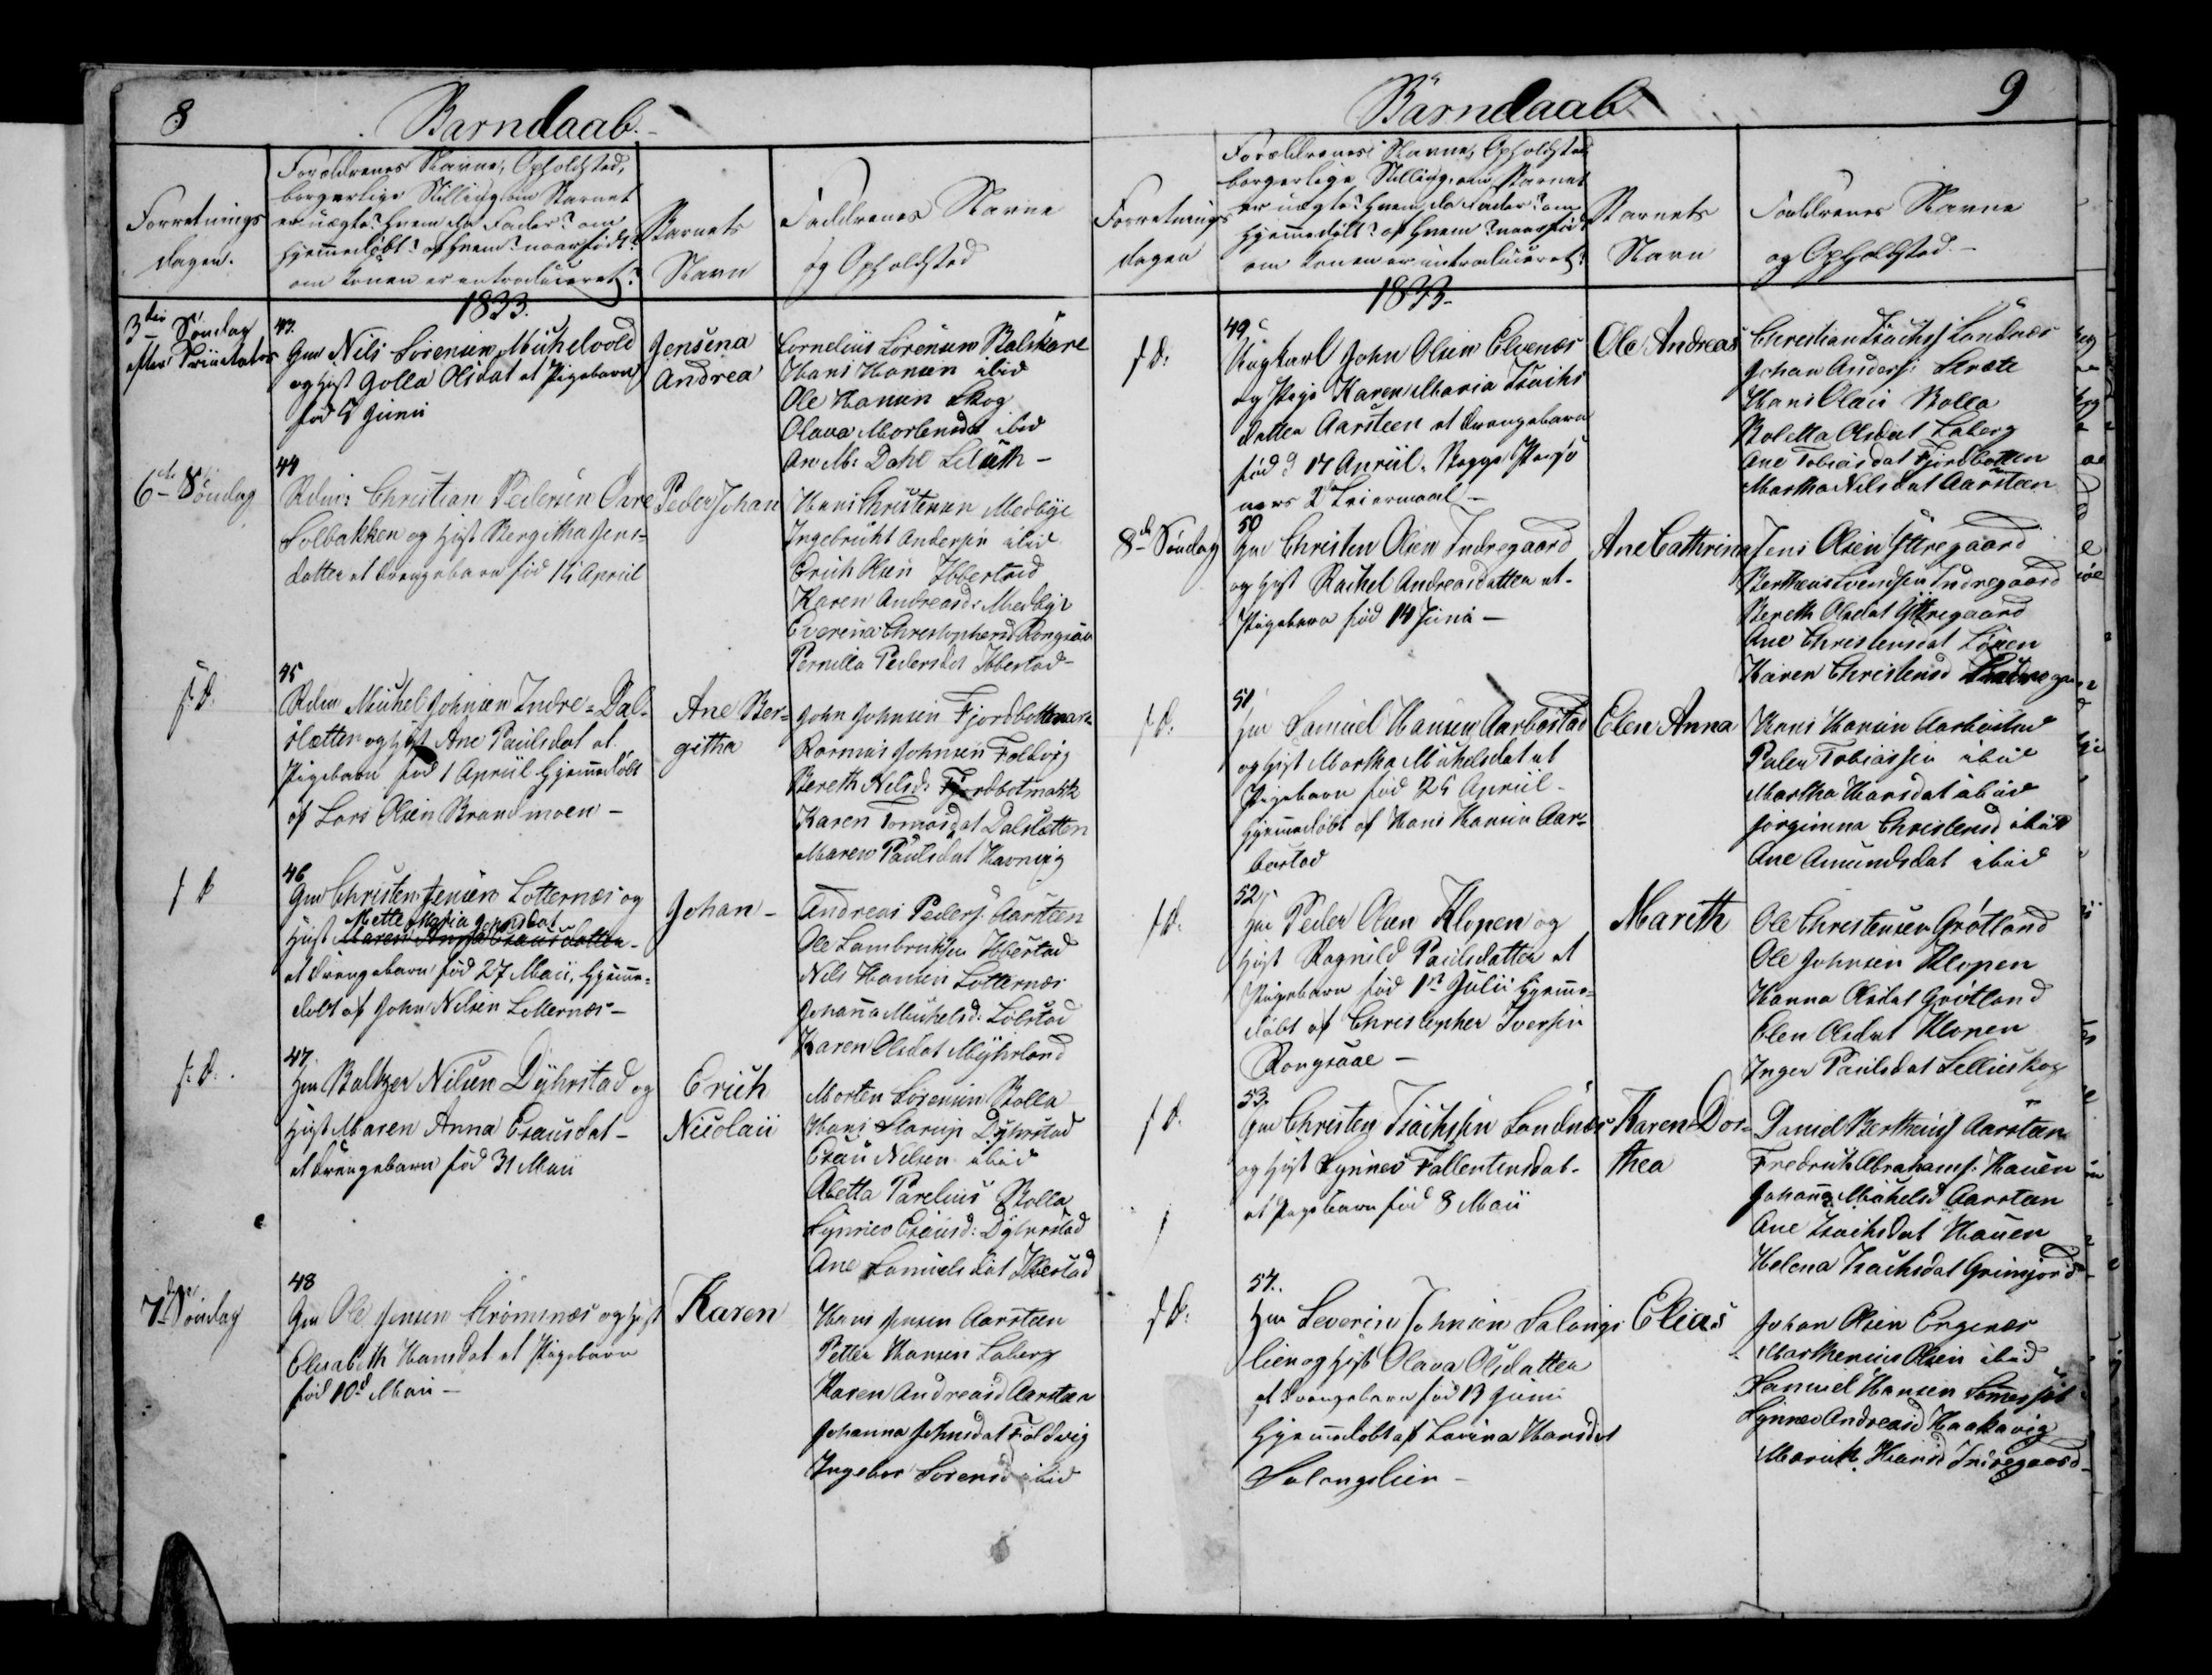 8
Barndaab.
Forretnings
dagen.
Forældrenes Navne, Opholdsted,
borgerlige Stilling, om Barnet
er uægte? hvem da Fader? om
hjemmedøbt? af hvem? naar født?
om Konen er introduceret?
Barnets
Navn
Faddrenes Navne
og Opholdsted
1833.
3die Søndag
efter Trinitatis
43.
Gm Nils Sørensen Michelvold
og Hust Golla Olsdat et Pigebarn
fød 5 Junii
Jensina
Andrea
Cornelius Sørensen Balskare
Hans Hansen ibid
Ole Hansen Skog
Olava Mortensdat ibid
An: M: Dahl
6te Søndag
44
Christian Pedersen
Solbakken og Hust Bergitha Jens-
datter et Drengebarn fød 14 Apriil
Peder Johan
Hans Christensen Medbÿe
Ingebricht Andersen ibid
Erich Olsen Ibbestad
Karen Andreasd: Medbÿe
Everina Christophersd Rongsaae
Pernilla Pedersdat Ibbestad
f. d.
45
Michel Johnsen Indre-Dal-
slætten og Hust Ane Paulsdat et
Pigebarn fød 1 Apriil hjemmedøbt
af Lars Olsen Brandmoen -
Ane Ber-
githa
John Johnsen Fjordbotmark
Rasmus Johnsen Foldvig
Bereth Nilsd: Fjordbotmark
Karen Tomasdat Dalslætten
Maren Paulsdat Havnvig
f d
46
Gm Christen Jensen Lotternæs og
Mette Maria Jonsdat
Hust Maren Anna Esausdatter
et Drengebarn fød 27 Maii, hjemme-
døbt af John Nilsen Lotternæs -
Johan -
Andreas Peders: Aarsteen
Ole Lambrichtsen Ibbestad
Nils Hansen Lotternæs
Johanna Michelsd: Sølstad
Karen Olsdat Mÿhrland
f: d.
47
Gm Baltzer Nilsen Dÿhrstad og
Hust Maren Anna Esausdat -
et Drengebarn fød 31 Maii
Erich
Nicolaii
Morten Sørensen Rolla
Hans Starup Dÿhrstad
Esau Nilsen ibid
Abetta Parelius Rolla
Synnev Esausd: Dÿhrstad
Ane Samuelsdat Ibbestad
7de Søndag
48
Gm Ole Jensen Strømnæs og Hust
Elisabeth Hansdat et Pigebarn
fød 10d Maii -
Karen
Hans Jensen Aarsteen
Petter Hansen Laberg
Karen Andreasd Aarsteen
Johanna Johnsdat Foldvig
Ingebor Sørensd ibid
9
Barndaab.
Forretnings
dagen
Forældrenes Navne, Opholdsted,
borgerlige Stilling, om Barnet
er uægte? hvem da Fader? om
hjemmedøbt? af hvem? naar født
om Konen er introduceret?
Barnets
Navn
Faddrenes Navne
og Opholdsted -
1833.
f d:
49
Ungkarl John Olsen Elvenæs
og Pige Karen Maria Isachs
datter Aarsteen et Drengebarn
fød d 17 Apriil. Begge Perso
ners 2d Leiermaal -
Ole Andreas
Christian Isachss Sandnæs
Johan Anders: Stræte
Hans Olaus Rolla
Boletta Olsdat Laberg
Ane Tobiasdat Fjordbotten
Martha Nilsdat Aarsteen
8de Søndag
50
Gm Christen Olsen Indregaard
og Hust Rachel Andreasdatter et
Pigebarn fød 14 Junii -
Ane Cathrina
Jens Olsen Ÿttregaard
Bertheus Svendsen Indregaard
Bereth Olsdat Ÿttregaard
Ane Christensdat
Karen Christensd
f d:
51
Gm Samuel Hansen Aarbostad
og Hust Martha Michelsdat et
Pigebarn fød 25 Apriil -
hjemmedøbt af Hans Hansen Aar-
bostad
Elen Anna
Hans Hansen Aarbostad
Peder Tobiassen ibid
Martha Hansdat ibid
Jørginna Christensd ibid
Ane Amundsdat ibid
f d:
52
Gm Peder Olsen Klopen og
Hust Ragnild Paulsdatter et
Pigebarn fød 1st Julii hjemme-
døbt af Christopher Iversen
Rongsaae -
Mareth
Ole Christensen Grøtland
Ole Johnsen Klopen
Hanna Olsdat Grøtland
Elen Olsdat Klopen
Inger Paulsdat Sellieskog
f d.
53.
Gm Christen Isachsen Sandnæs
og Hust Synnev Fallentinsdat.
et Pigebarn fød 8 Maii
Karen Dor-
thea
Daniel Bertheuss Aarsteen
Fredrich Abrahams: Hauen
Johanna Michelsd Aarsteen
Ane Isachsdat Hauen
Helena Isachsdat Grimjord
f d:
54.
Gm Severin Johnsen Salangs
lien og Hust Olava Olsdatter
et Drengebarn fød 13 Junii
hjemmedøbt af Lavina Hansdat
Salangslien -
Elias
Johan Olsen Engenes
Marthenius Olsen ibid
Samuel Hansen Sommersæt
Synnev Andreasd Haakavig
Marith Hansd Indregaard